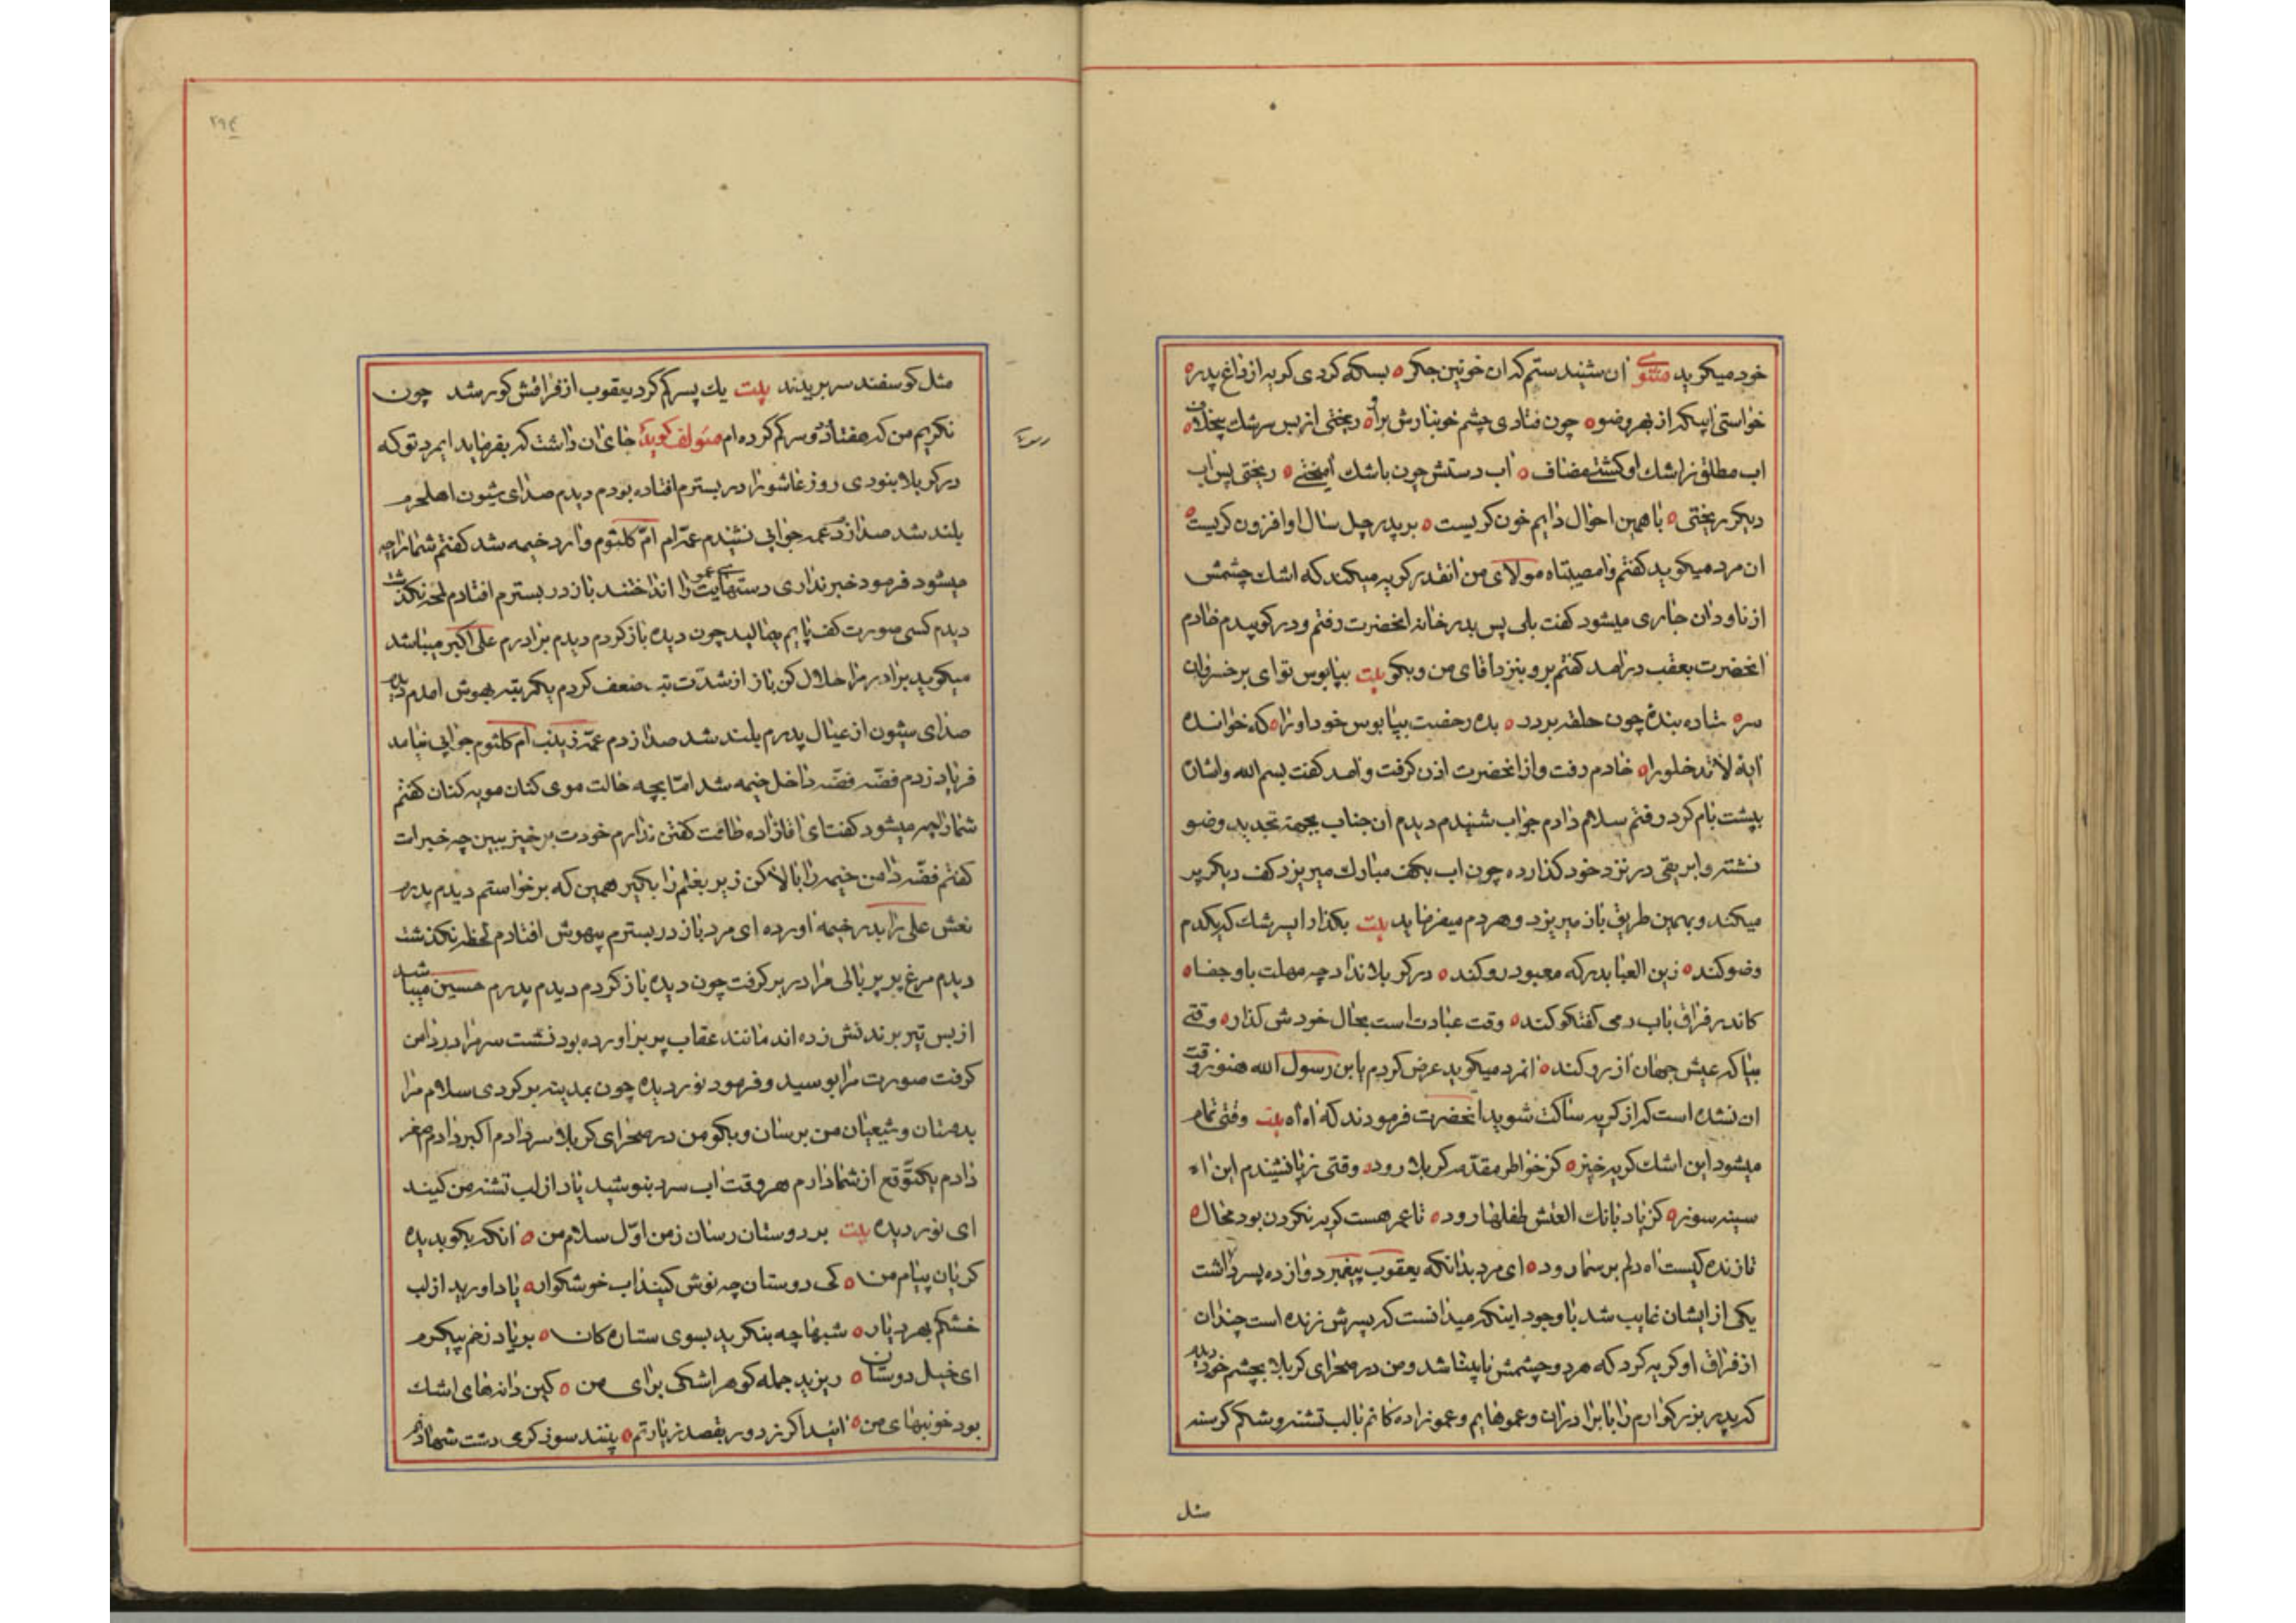 خود میکوید مثنوی ان شنیدستم که ان خونین جکر ٥ بسکه کردی کریه از داغ پدر ٥
خواستی ابیکه از بهر وضو ٥ چون فتادی چشم خونبارش براو ٥ ریختی از بس سرشك بیخلاف ٥
اب مطلق ز اشك او کشتی مضاف ٥ اب دستش چون باشك امیختی ٥ ریختی پس اب
دیکر ریختی ٥ با همین احوال دایم خون کریست ٥ بر پدر چل سال او افزون کریست ٥
ان مرد میکوید کفتم وامصیبتاه مولای من انقدر کریه میکند که اشك چشمش
از ناودان جاری میشود کفت بلی پس بدر خانه انحضرت رفتم و در کوبیدم خادم
انحضرت بعقب در امد کفتم برو بنزد اقای من و بکو بیت بپابوس توای بر خسروان
سره ستاده بندهٔ چون حلقه بردر ٥ بده رخصت بپابوس خود اورا ٥ که خوانده
ایهٔ لا تدخلورا ٥ خادم رفت و از انحضرت اذن کرفت و امد کفت بسم الله و اشارهٔ
بپشت بام کرد رفتم سلام دادم جواب شنیدم دیدم ان جناب بجهة تجدید وضو
نشسته و ابریقی در نزد خود کذارده چون اب بکف مبارك میریزد کف دیکر پر
میکند و بهمین طریق باز میریزد و هردم میفرماید بیت بکذار ایسرشك که یکدم
وضو کند ٥ زین العبا بدرکه معبود رو کند ٥ در کربلا نداد چه مهلت باو جفا ٥
کاندر فراق باب دمی کفتکو کند ٥ وقت عبادت است بحال خودش کذار ٥ وقتی
بیا که عیش جهان ارزو کند ٥ انمرد میکوید عرض کردم یابن رسول الله هنوز وقت
ان نشده است که از کریه ساکت شوید انحضرت فرمودند که اه اه بیت وقتی تمام
میشود این اشك کریه خیز ٥ کز خواطر مقدمه کربلا رود ٥ وقتی ز پا نشیندم این اه
سینه سوز ٥ کز یاد بانك العطش طفلها رود ٥ تا عمر هست کریه نکردن بود محال ٥
تا زنده کیست اه دلم بر سما رود ٥ ای مرد بدانکه یعقوب پیغمبر دوازده پسر داشت
یکی از ایشان غایب شد با وجود اینکه میدانست که پسرش زنده است چندان
از فراق او کریه کرد که هر دو چشمش نابینا شد و من در صحرای کربلا بچشم خود دیدم
که پدر بزرکوارم را با برادران و عموهایم و عموزاده کانم با لب تشنه و شکم کرسنه
مثل
٢٩٤
مثل کوسفند سر بریدند بیت یك پسر کم کرد یعقوب از فراقش کور شد چون
نکریم من که هفتاد و دو سر کم کرده ام مؤلف کوید جای ان داشت که بفرماید ایمرد تو که
در کربلا نبودی روز عاشورا در بسترم افتاده بودم دیدم صدای شیون اهلحرم
بلند شد صدا زدم عمه جوابی نشنیدم عمه ام ام کلثوم وارد خیمه شد کفتم شمارا چه
میشود فرمود خبر نداری دستهای عمویت را انداختند باز در بسترم افتادم لحظه نکذشت
دیدم کسی صورت کف پایم میمالید چون دیده باز کردم دیدم برادرم علی اکبر میباشد
میکوید برادر مرا حلال کن باز از شدت تب ضعف کردم یکمرتبه بهوش امدم دیدم
صدای شیون از عیال پدرم بلند شد صدا زدم عمه زینب ام کلثوم جوابی نیامد
فریاد زدم فضه فضه داخل خیمه شد اما بچه حالت موی کنان مویه کنان کفتم
شمارا چه میشود کفت ای اقازاده طاقت کفتن ندارم خودت برخیز ببین چه خبر است
کفتم فضه دامن خیمه را بالا کن زیر بغلم را بکیر همین که برخواستم دیدم پدرم
نعش علی را بدر خیمه اورده ای مرد باز در بسترم بیهوش افتادم لحظه نکذشت
دیدم مرغ پر پر بالی مرا در بر کرفت چون دیده باز کردم دیدم پدرم حسین میباشد
از بس تیر بر بدنش زده اند مانند عقاب پر بر اورده بود نشست سر مرا در دامن
کرفت صورت مرا بوسید و فرمود نور دیده چون بمدینه برکردی سلام مرا
بدوستان و شیعیان من برسان و بکو من در صحرای کربلا سر دادم اکبر دادم اصغر
دادم یکتوقع از شما دارم هر وقت اب سرد بنوشید یاد از لب تشنه من کنید
ای نور دیده بیت بر دوستان رسان ز من اول سلام من ٥ انکه بکو بدیدهٔ
کریان پیام من ٥ کی دوستان چه نوش کنید اب خوشکوار ٥ یاد اورید از لب
خشکم بهر دیار ٥ شبها چه بنکرید بسوی ستاره کان ٥ بر یاد زخم پیکرم
ای خیل دوستان ٥ ریزید جمله کوهر اشکی برای من ٥ کین دانهای اشك
بود خونبهای من ٥ ائید اکر ز دور بقصد زیارتم ٥ بینند سوز کرمی دشت شهادتم